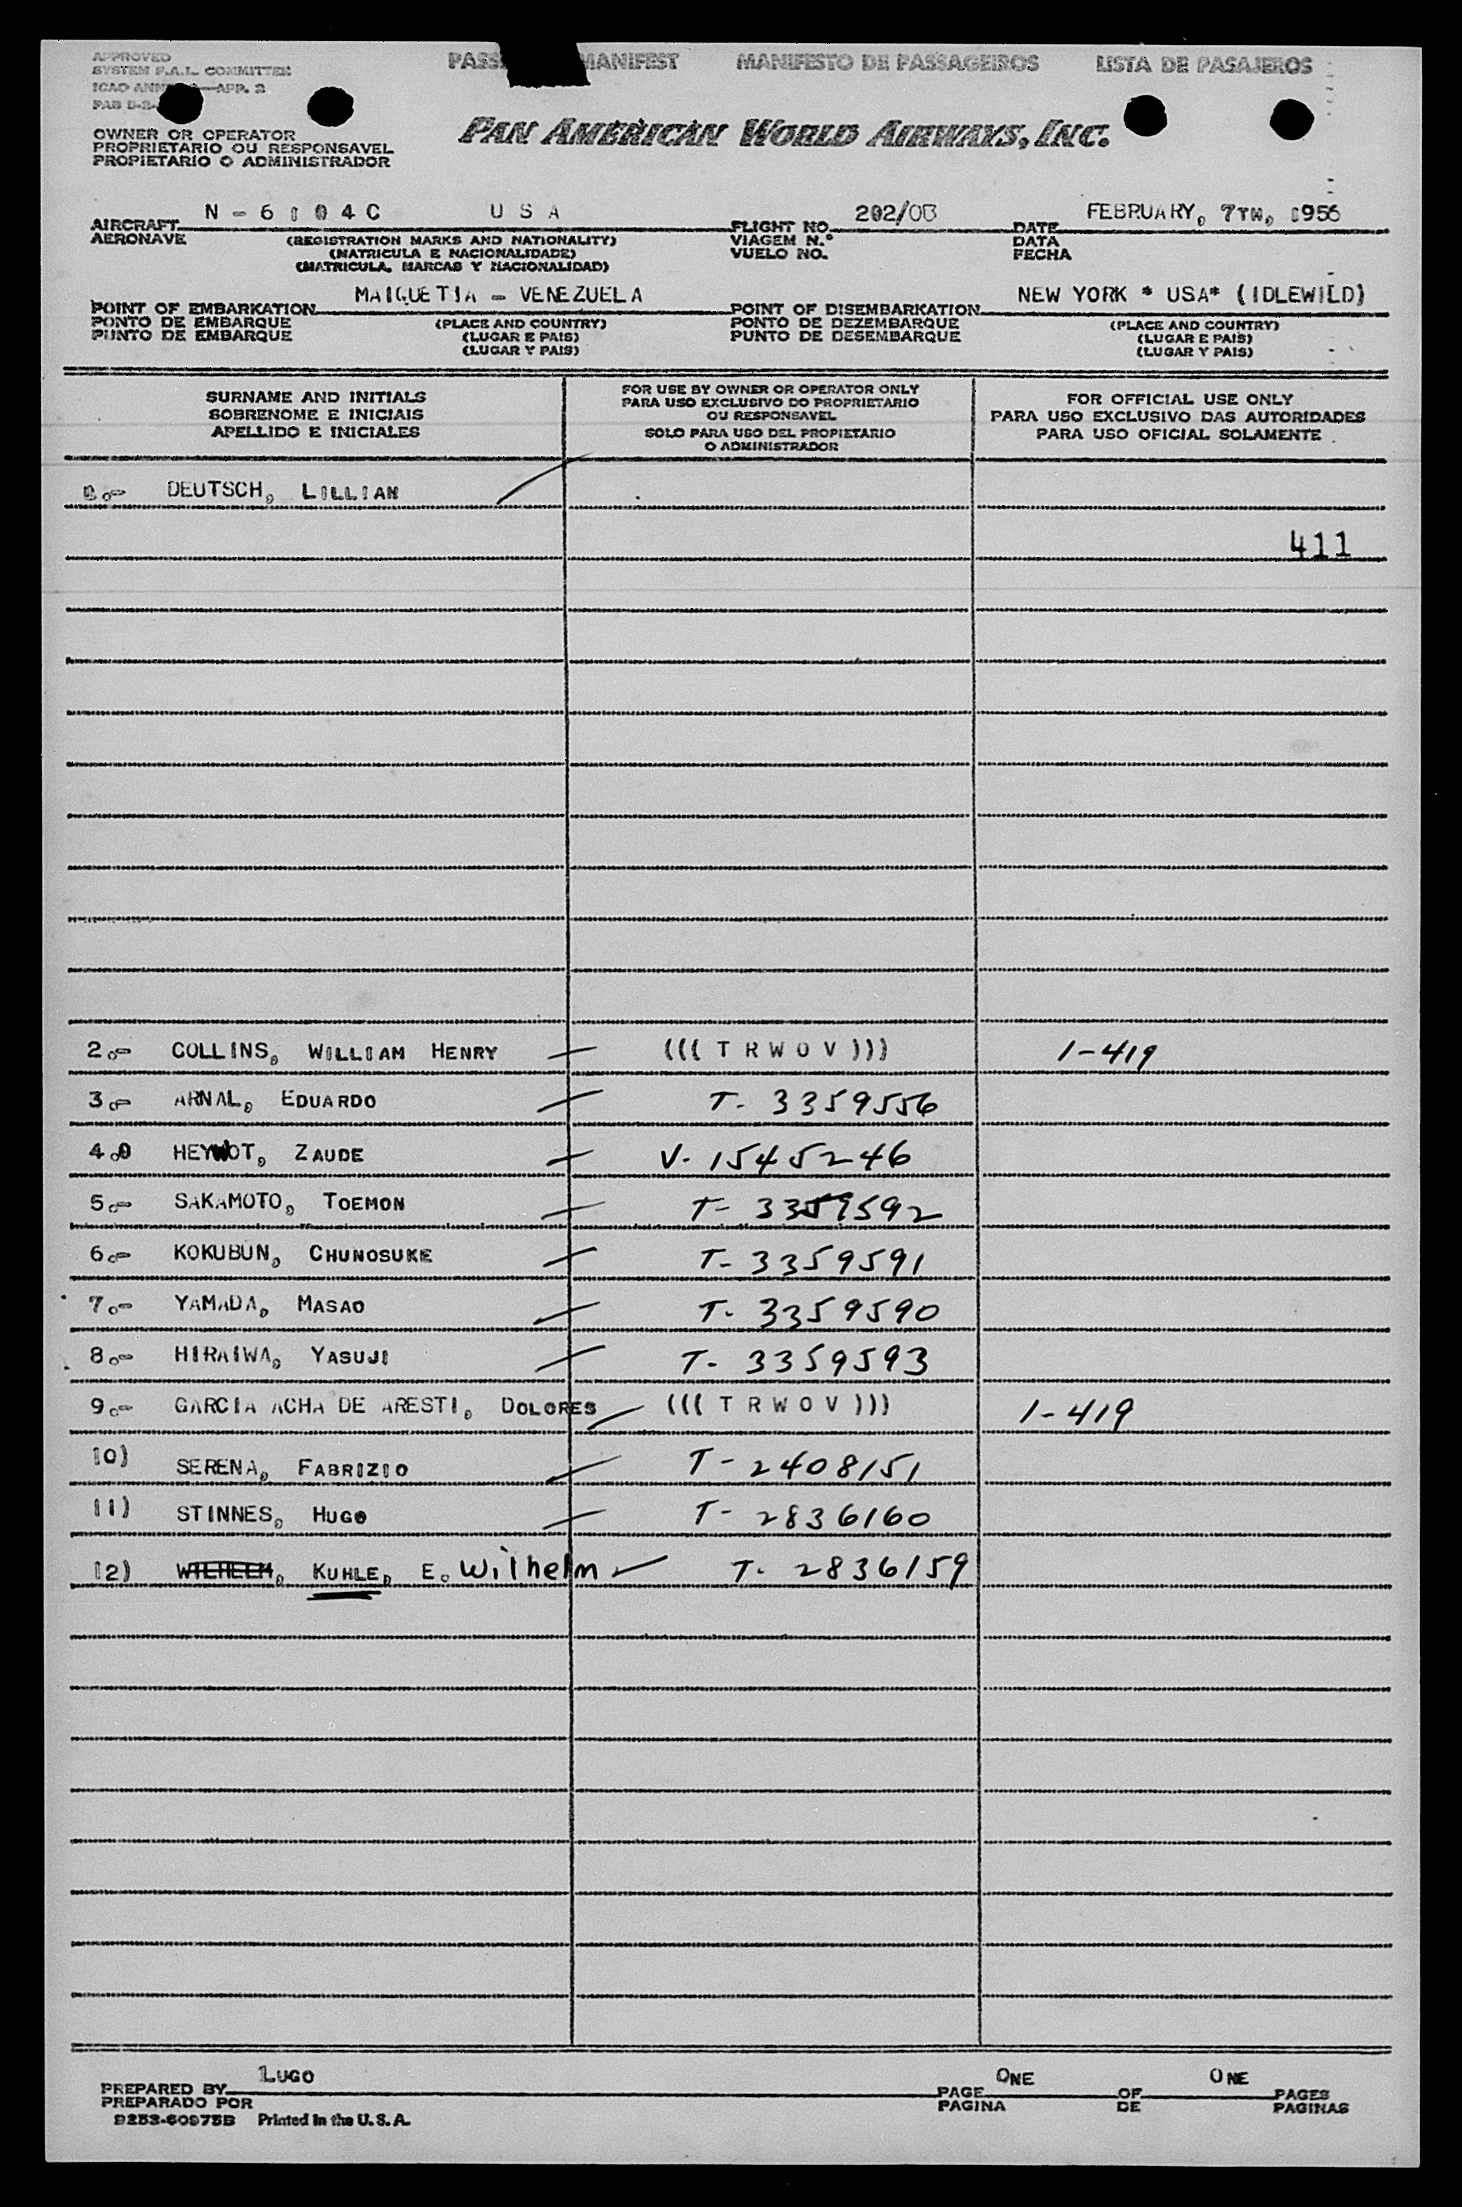 APPROVED
SYSTEM F.A.L. COMMITTEE
ICAO APP. 2
PASSENGER MANIFEST MANIFESTO DE PASSAGEIROS LISTA DE PASAJEROS
PAN AMERICAN WORLD AIRWAYS, INC.
OWNER OR OPERATOR
PROPRIETARIO OU RESPONSAVEL
PROPIETARIO O ADMINISTRADOR
AIRCRAFT N-6104C USA FLIGHT NO. 202/ DATE FEBRUARY, 7TH, 1956
AERONAVE (REGISTRATION MARKS AND NATIONALITY) VIAGEM N.º DATA
(MATRICULA E NACIONALIDADE) VUELO NO. FECHA
(MATRICULA, MARCAS Y NACIONALIDAD)
POINT OF EMBARKATION MAIQUETIA - VENEZUELA POINT OF DISEMBARKATION NEW YORK * USA* (IDLEWILD)
PONTO DE EMBARQUE (PLACE AND COUNTRY) PONTO DE DEZEMBARQUE (PLACE AND COUNTRY)
PUNTO DE EMBARQUE (LUGAR E PAIS) PUNTO DE DESEMBARQUE (LUGAR E PAIS)
(LUGAR Y PAIS) (LUGAR Y PAIS)
SURNAME AND INITIALS
SOBRENOME E INICIAIS
APELLIDO E INICIALES
FOR USE BY OWNER OR OPERATOR ONLY
PARA USO EXCLUSIVO DO PROPRIETARIO
OU RESPONSAVEL
SOLO PARA USO DEL PROPIETARIO
O ADMINISTRADOR
FOR OFFICIAL USE ONLY
PARA USO EXCLUSIVO DAS AUTORIDADES
PARA USO OFICIAL SOLAMENTE
1.- DEUTSCH, LILLIAN
411
2.- COLLINS, WILLIAM HENRY (((T R W O V))) 1-419
3.- ARNAL, EDUARDO T- 3359556
4.- HEYWOT, ZAUDE V- 1545246
5.- SAKAMOTO, TOEMON T- 3359592
6.- KOKUBUN, CHUNOSUKE T- 3359591
7.- YAMADA, MASAO T- 3359590
8.- HIRAIWA, YASUJI T- 3359593
9.- GARCIA ACHA DE ARESTI, DOLORES (((T R W O V))) 1-419
10) SERENA, FABRIZIO T- 2408151
11) STINNES, HUGO T- 2836160
12) WILHELM, KUHLE, E. Wilhelm T- 2836159
PREPARED BY LUGO PAGE ONE OF ONE PAGES
PREPARADO POR PAGINA DE PAGINAS
9253-60975B Printed in the U.S.A.